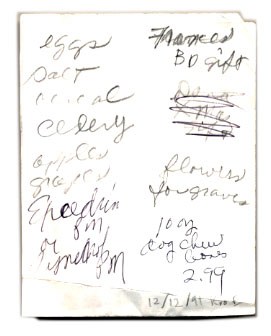 eggs
salt
cereal
celery
apples
grapes
Excedrin
PM
or
PM
Frances
BD gift
flowers
for graves
10 oz
dog chew
bones
2.99
12/12/91